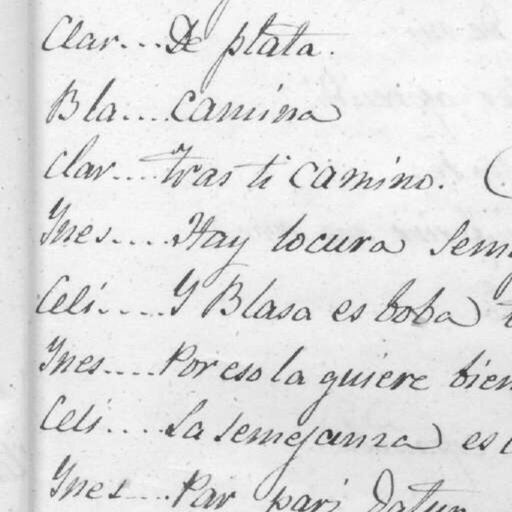 Clar... De plata.
Bla.... camina
Clar.... tras ti camino.
Ynes.... Hay locura
Celi..... Y Blasa es boba
Ynes..... Por eso la quiere bien
Celi.... La semejanza es
Ynes.... Par pari datur